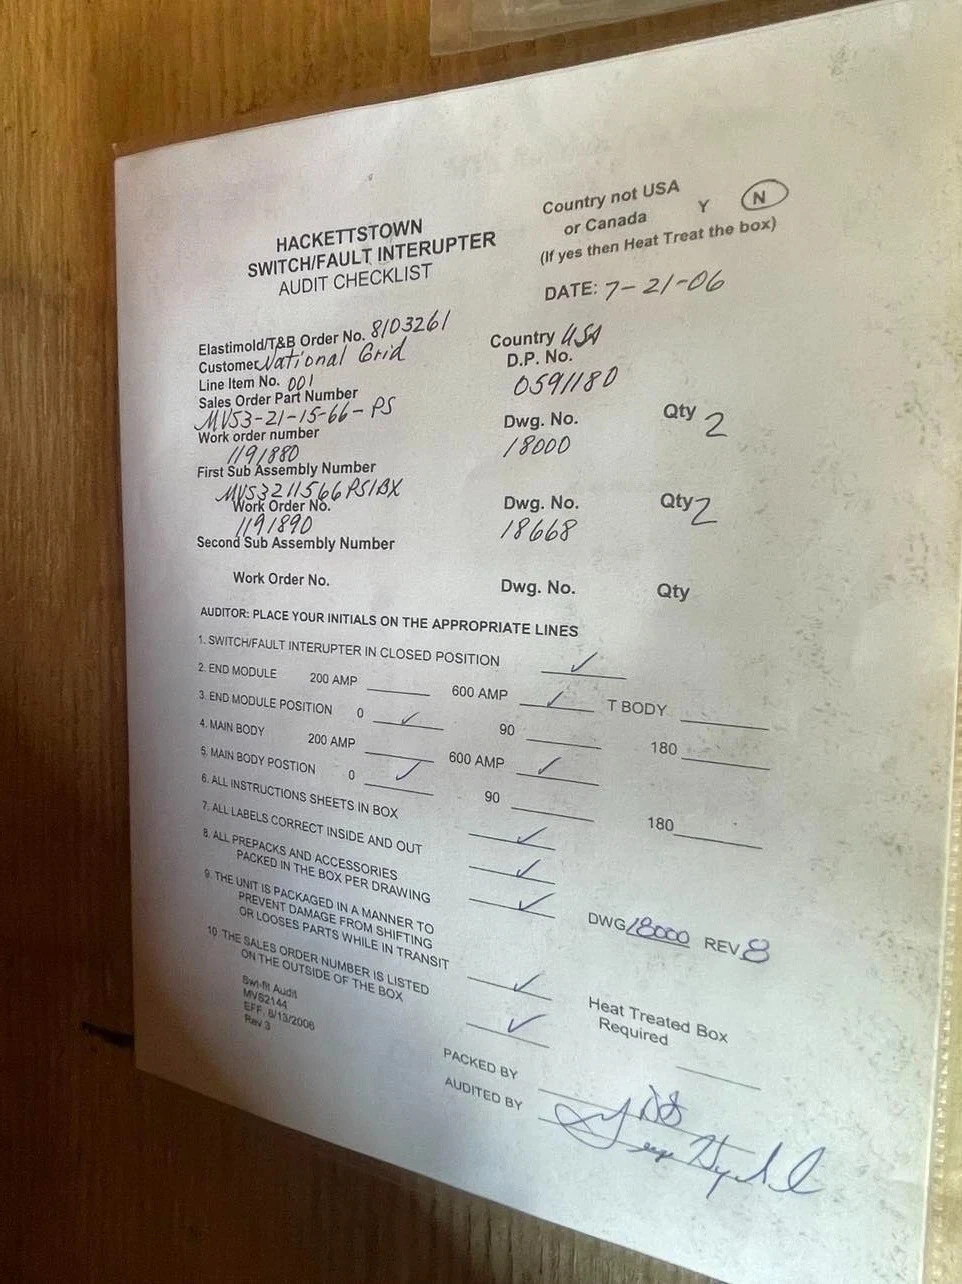 Country not USA
or Canada Y N
(If yes then Heat Treat the box)
HACKETTSTOWN
SWITCH/FAULT INTERUPTER
AUDIT CHECKLIST
DATE: 7-21-06
Elastimold/T&B Order No. 8103261
Country USA
Customer National Grid
D.P. No.
Line Item No. 001
0591180
Sales Order Part Number
MVS3-21-15-66-PS
Dwg. No. Qty 2
Work order number
18000
1191880
First Sub Assembly Number
MVS3211566PS1BX
Dwg. No. Qty 2
Work Order No.
18668
1191890
Second Sub Assembly Number
Work Order No. Dwg. No. Qty
AUDITOR: PLACE YOUR INITIALS ON THE APPROPRIATE LINES
1. SWITCH/FAULT INTERUPTER IN CLOSED POSITION ✓
2. END MODULE 200 AMP 600 AMP ✓ T BODY
3. END MODULE POSITION 0 ✓ 90 180
4. MAIN BODY 200 AMP 600 AMP ✓
5. MAIN BODY POSTION 0 ✓ 90 180
6. ALL INSTRUCTIONS SHEETS IN BOX ✓
7. ALL LABELS CORRECT INSIDE AND OUT ✓
8. ALL PREPACKS AND ACCESSORIES
PACKED IN THE BOX PER DRAWING ✓ DWG 18000 REV 8
9. THE UNIT IS PACKAGED IN A MANNER TO
PREVENT DAMAGE FROM SHIFTING
OR LOOSES PARTS WHILE IN TRANSIT ✓
10. THE SALES ORDER NUMBER IS LISTED
ON THE OUTSIDE OF THE BOX ✓
Heat Treated Box
Required
Swi-flt Audit
MVS2144
EFF. 6/13/2006
Rev 3
PACKED BY
AUDITED BY